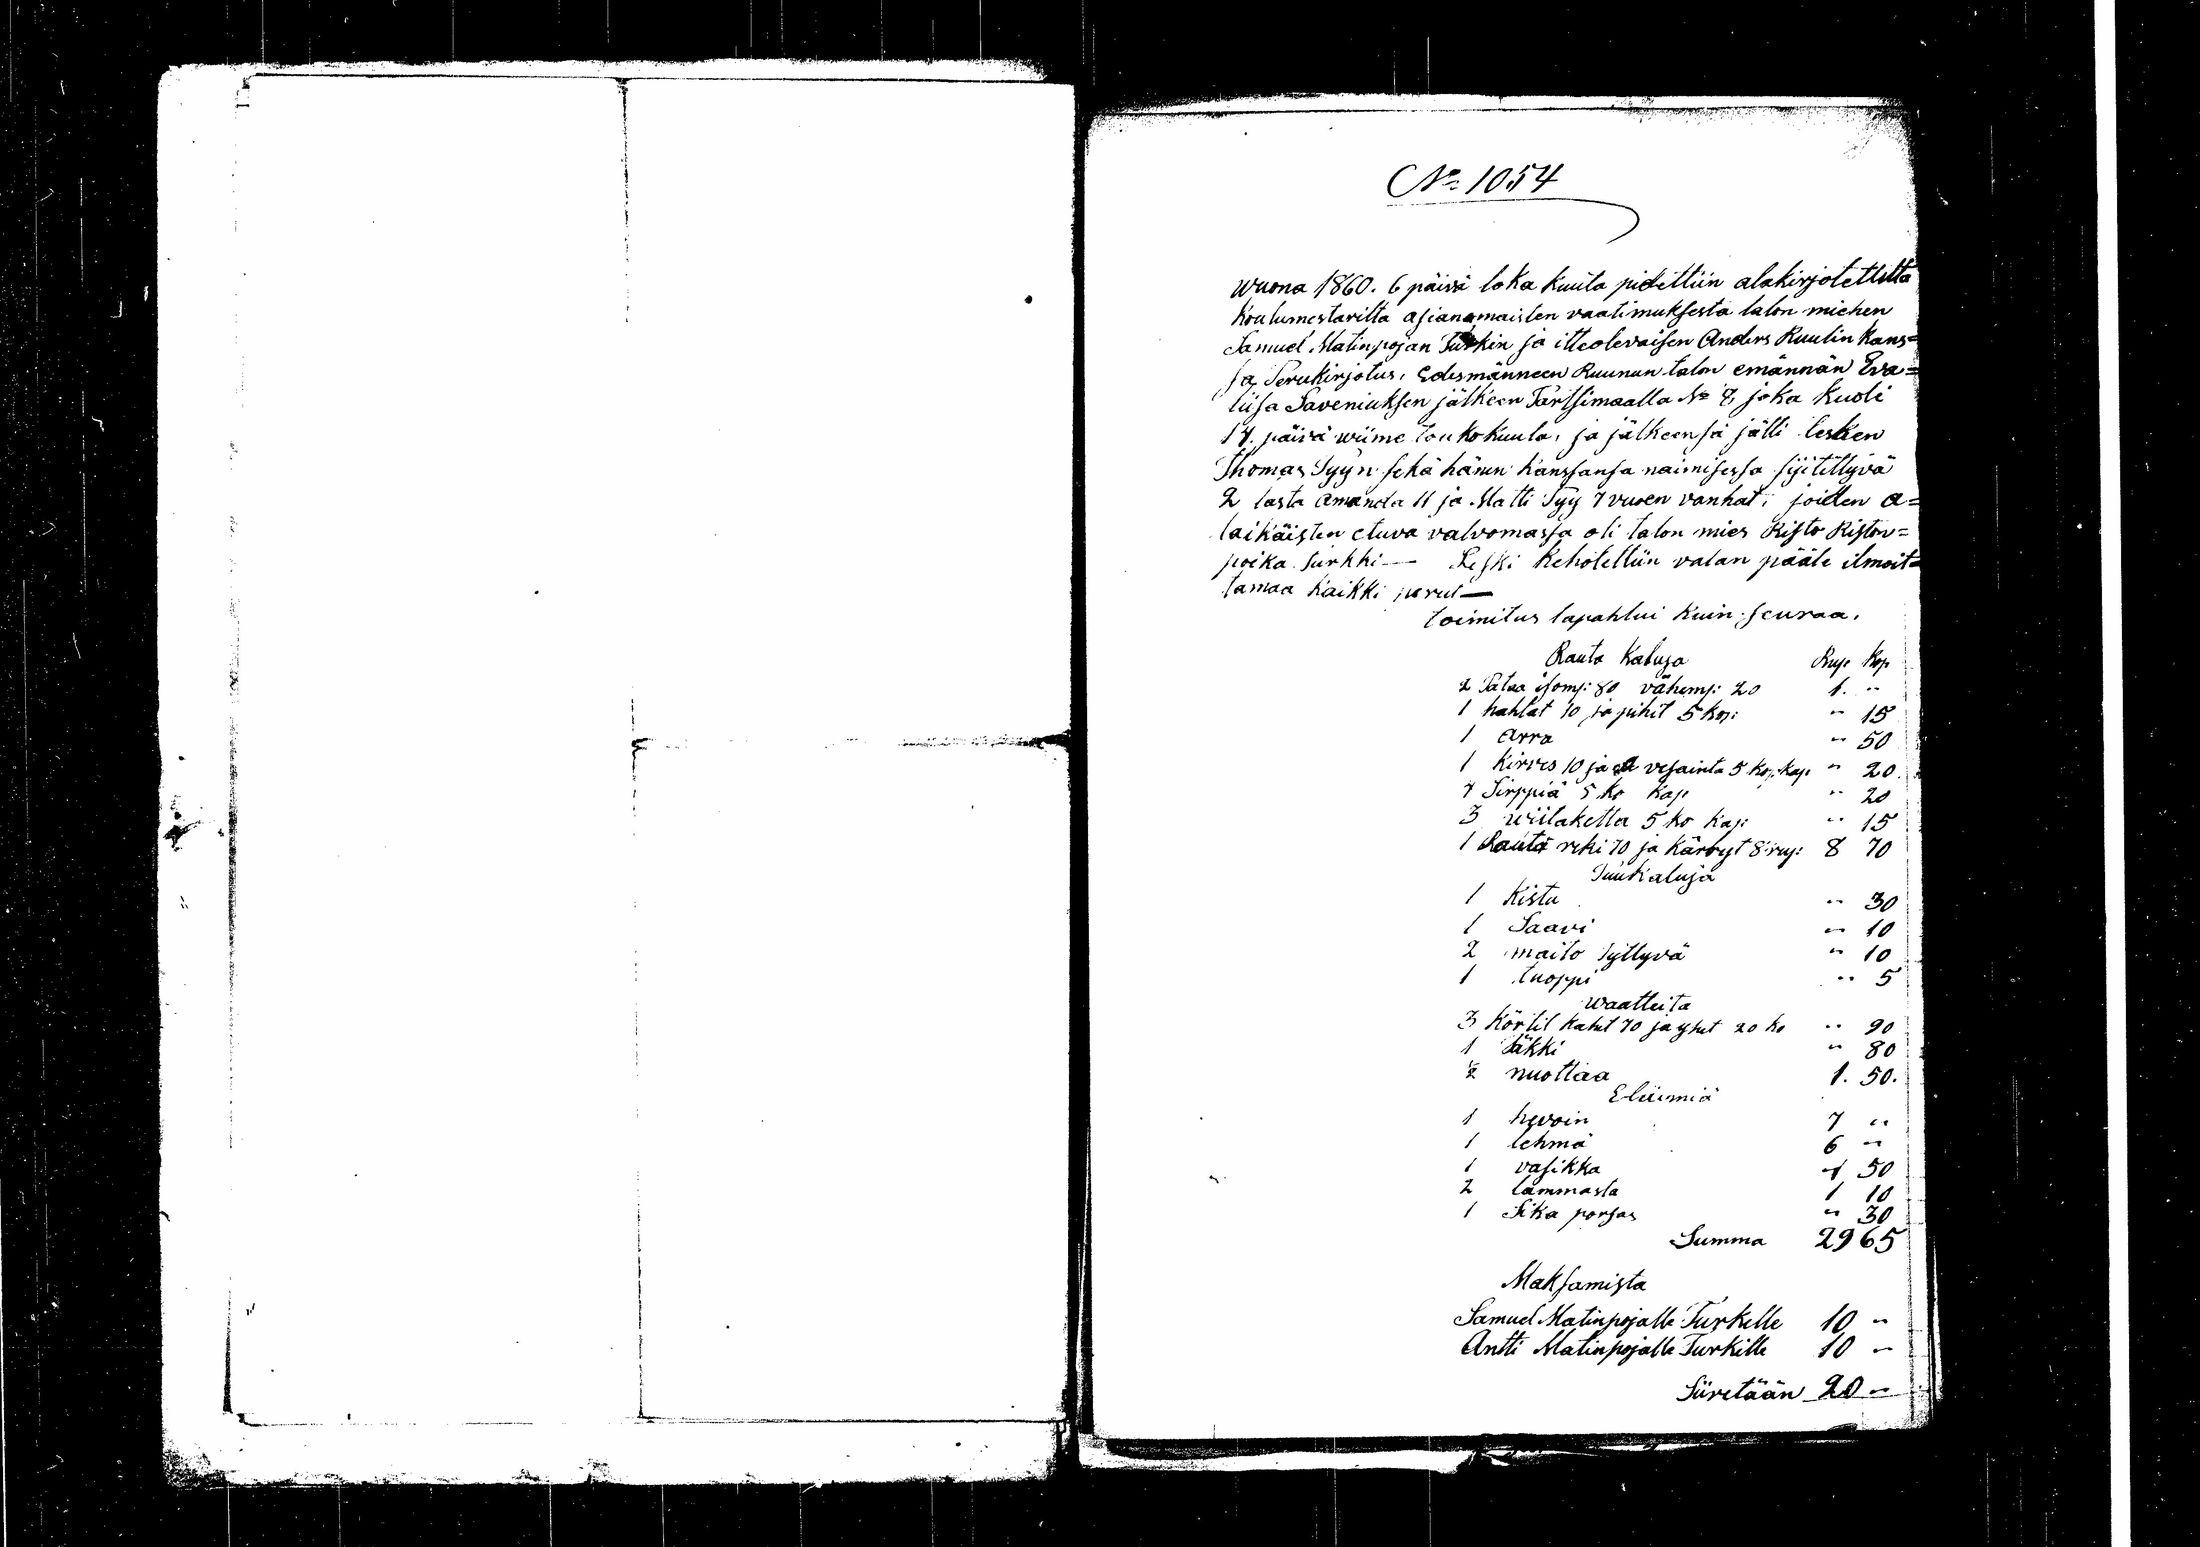 No 1054
wuona 1860. 6 päivä loka kuuta pidettiin alakirjotettulta
koulumestarilta asianomaisten vaatimuksesta talon miehen
Samuel Matinpojan Turkin ja itteolevaisen Anders Ruulin kans=
sa, Perukirjotus, Edesmänneen Ruunun talon emännän Eva=
liisa Saveniuksen jälkeen Tartsimaalla No 8, joka kuoli
14. päivä wiime toukokuuta, ja jälkeensä jätti lesken
Thomas Tyyn sekä hänen kanssansa naimisessa sijitettyvä
2 lasta Amanda 11 ja Matti Tyy 7 vuoen vanhat, joiden a=
laikäisten etuva valvomassa oli talon mies Risto Riston=
poika Turkki — Leski kehotettiin valan pääle ilmoit=
tamaa kaikki perut —
toimitus tapahtui kuin seuraa.
Rauta kaluja Rup Kop
2 Pataa isomp: 80 vähemp: 20 1. "
1 hahlat 10 ja pihit 5 kop: " 15
1 arra " 50
1 kirves 10 ja 2 vesainta 5 kop. kap " 20
4 Sirppiä 5 ko kap " 20
3 wiilaketta 5 ko kap: " 15
1 Rauta reki 70 ja kärryt 8 rup: 8 70
Puukaluja
1 kistu " 30
1 Saavi " 10
2 maito pyttyvä " 10
1 tuoppi " 5
waatteita
3 körtil kahet 70 ja yhet 20 ko " 90
1 Säkki " 80
1/2 nuottaa 1. 50.
Eläimiä
1 hevoin 7 "
1 lehmä 6 "
1 vasikka 1 50
2 lammasta 1 10
1 Sika porsas " 30
Summa 29 65
Maksamista
Samuel Matinpojalle Turkille 10 "
Antti Matinpojalle Turkille 10 "
Siiretään 20 "